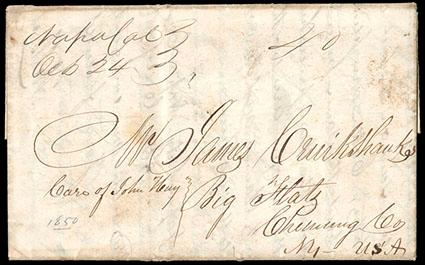 Napa Cal
Oct 24
40
Mr James Cruikshank
Care of John Hay
Big Flatz
Chemung Co
NY - USA
1850